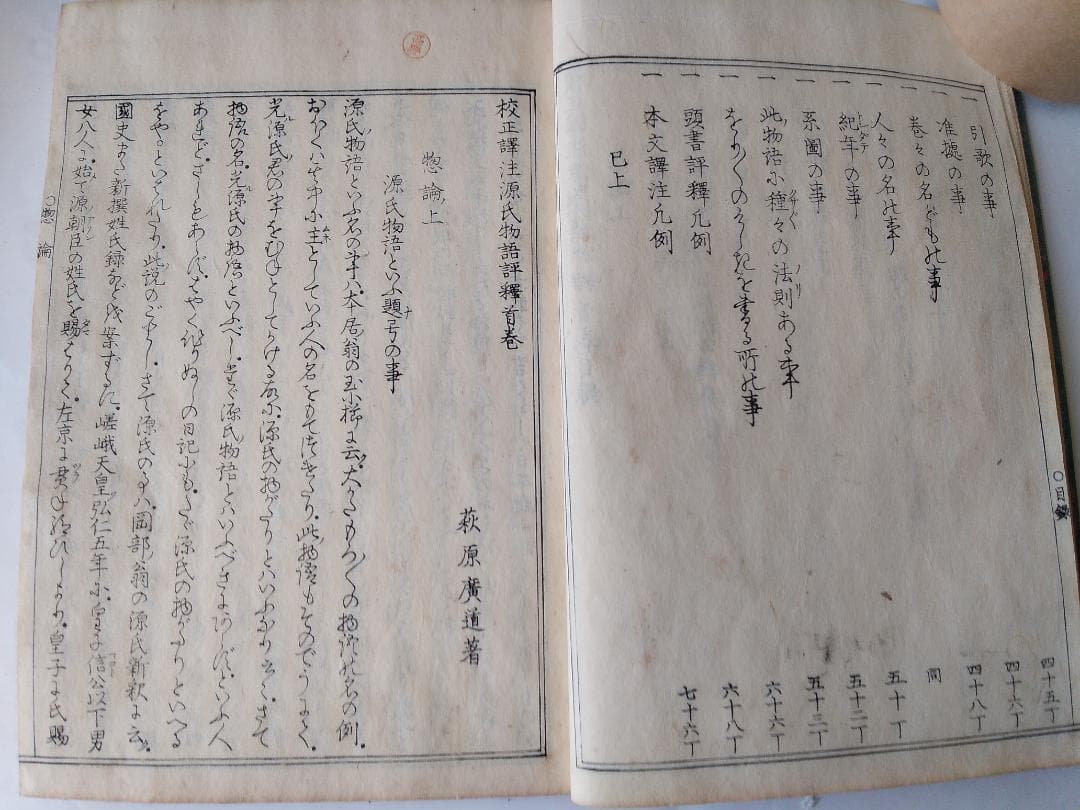 一 引歌の事 四十五丁
一 准據の事 四十六丁
一 巻々の名どもの事 四十八丁
一 人々の名の事 同
一 紀年の事 五十一丁
一 系圖の事 五十二丁
一 此物語に種々の法則ある事 五十三丁
をりくのうたを書る所の事 六十六丁
一 頭書評釋凡例 六十八丁
一 本文譯注凡例 七十六丁
已上
〇目録
校正譯注源氏物語評釋首巻
萩原廣道著
惣論上
源氏物語といふ題号の事
源氏物語といふ名の事ハ本居翁の玉小櫛に云大かたもろくの物語のむねの例
おほくハその中に主としていふ人の名をもてつけたり此物語もそのでうにて
光源氏君の事をむねとしてかける故に源氏の物がたりとハいふなり云々さて
物語の名光源氏の物語といふべしたゞ源氏物語とハいふべきにあらずといふ人
あれどさしもあらずはやく此作りぬしの日記にもたゞ源氏の物がたりといへる
をやといはれたり此説のごとしさて源氏の事ハ岡部翁の源氏新釈に云
國史また新撰姓氏録などを案ずるに嵯峨天皇弘仁五年に皇子信公以下男
女八人に始て源朝臣の姓氏を賜はりて左京に貫せ給ひしより皇子に氏賜
〇惣論